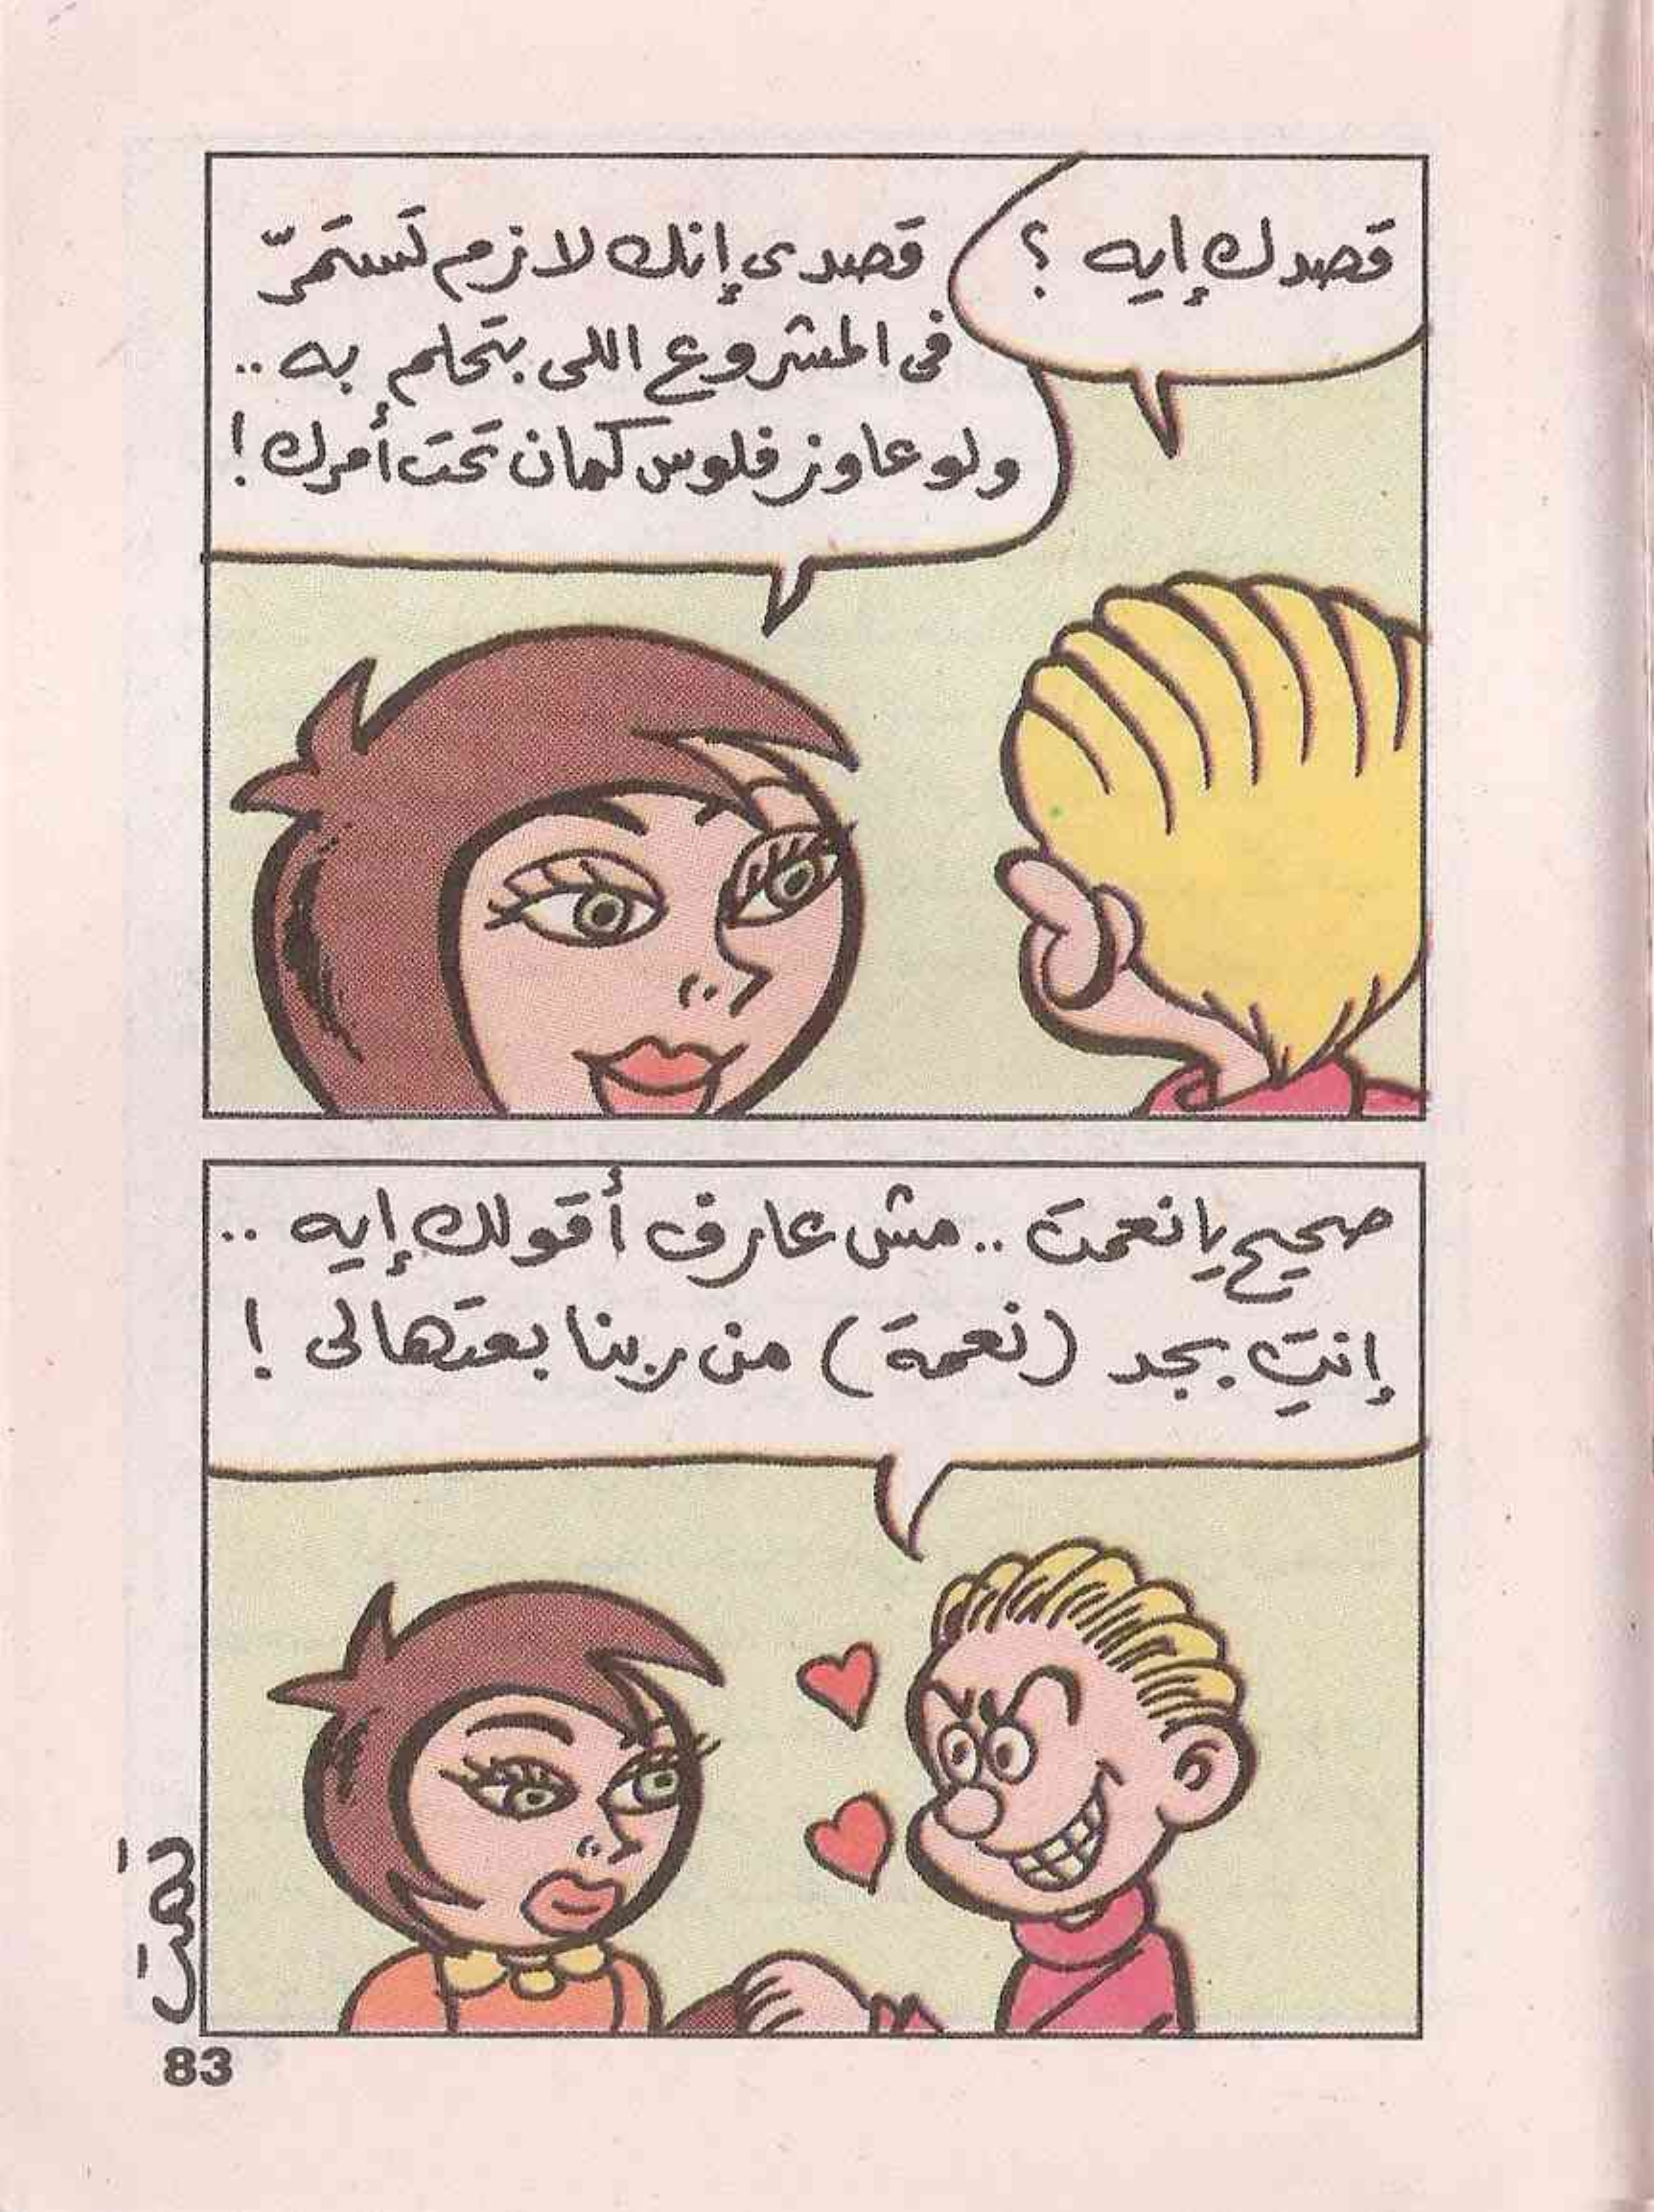 قصدك إيه ؟
قصدى إنك لازم تستمرّ
فى المشروع اللى بتحلم به ..
ولو عاوز فلوس كمان تحت أمرك !
صحيح يا نعمت .. مش عارف أقولك إيه ..
إنتِ بجد (نعمة) من ربنا بعتهالى !
تمت
83